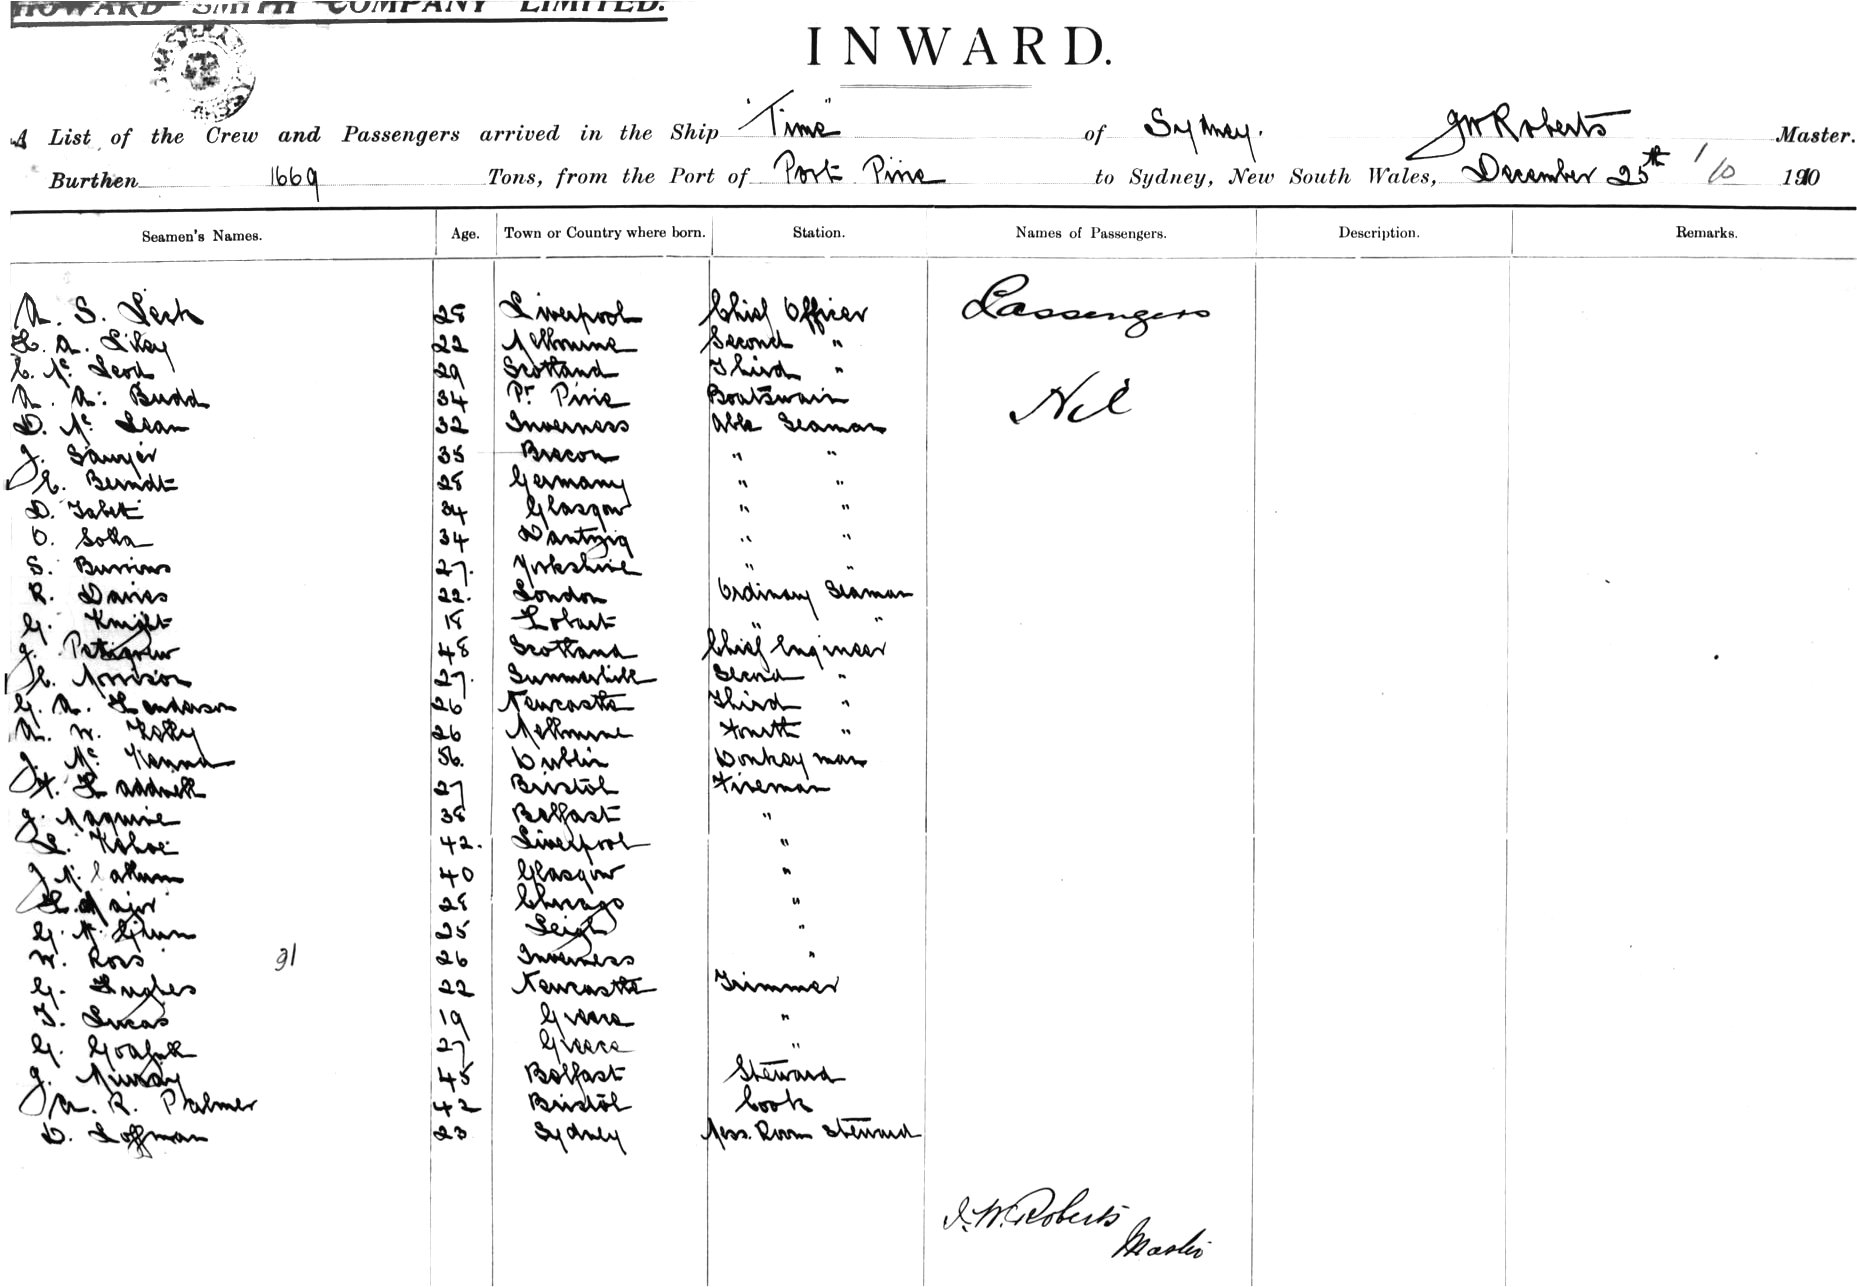 HOWARD SMITH COMPANY LIMITED.
INWARD.
A List of the Crew and Passengers arrived in the Ship "Time" of Sydney. JW Roberts Master.
Burthen 1669 Tons, from the Port of Port Pirie to Sydney, New South Wales, December 25th 1/10 1910
Seamen's Names. Age. Town or Country where born. Station. Names of Passengers. Description. Remarks.
A. S. Leck 28 Liverpool Chief Officer Passengers
H. A. Liley 22 Melbourne Second "
C. Mc Leod 29 Scotland Third "
A. A. Budd 34 Pt Pirie Boatswain Nil
D. Mc Lean 32 Inverness Able Seaman
J. Sawyer 35 Brecon " "
C. Berndt 28 Germany " "
D. 34 Glasgow " "
O. 34 Dantzig " "
S. Burrows 27. Yorkshire " "
R. Davies 22. London Ordinary Seaman
G. Knight 18 Hobart " "
J. Petigrew 48 Scotland Chief Engineer
C. Morrison 27. Summerhill Second "
G. A. Henderson 26 Newcastle Third "
A. W. Kelly 26 Melbourne Fourth "
J. Mc Kenna 56. Dublin Donkey man
F. Haddrell 27 Bristol Fireman
J. Maguire 38 Belfast "
L. Kehoe 42. Liverpool "
J Mc Callum 40 Glasgow "
H. Major 28 Chicago "
G. Mc Ginn 25 Leigh "
W. Ross 31 26 Inverness "
G. Hughes 22 Newcastle Trimmer
T. Lucas 19 Greece "
G. 27 Greece "
J. Murray 45 Belfast Steward
A. R. Palmer 42 Bristol Cook
D. Hoffman 23 Sydney Mess. Room Steward
J. W. Roberts
Master